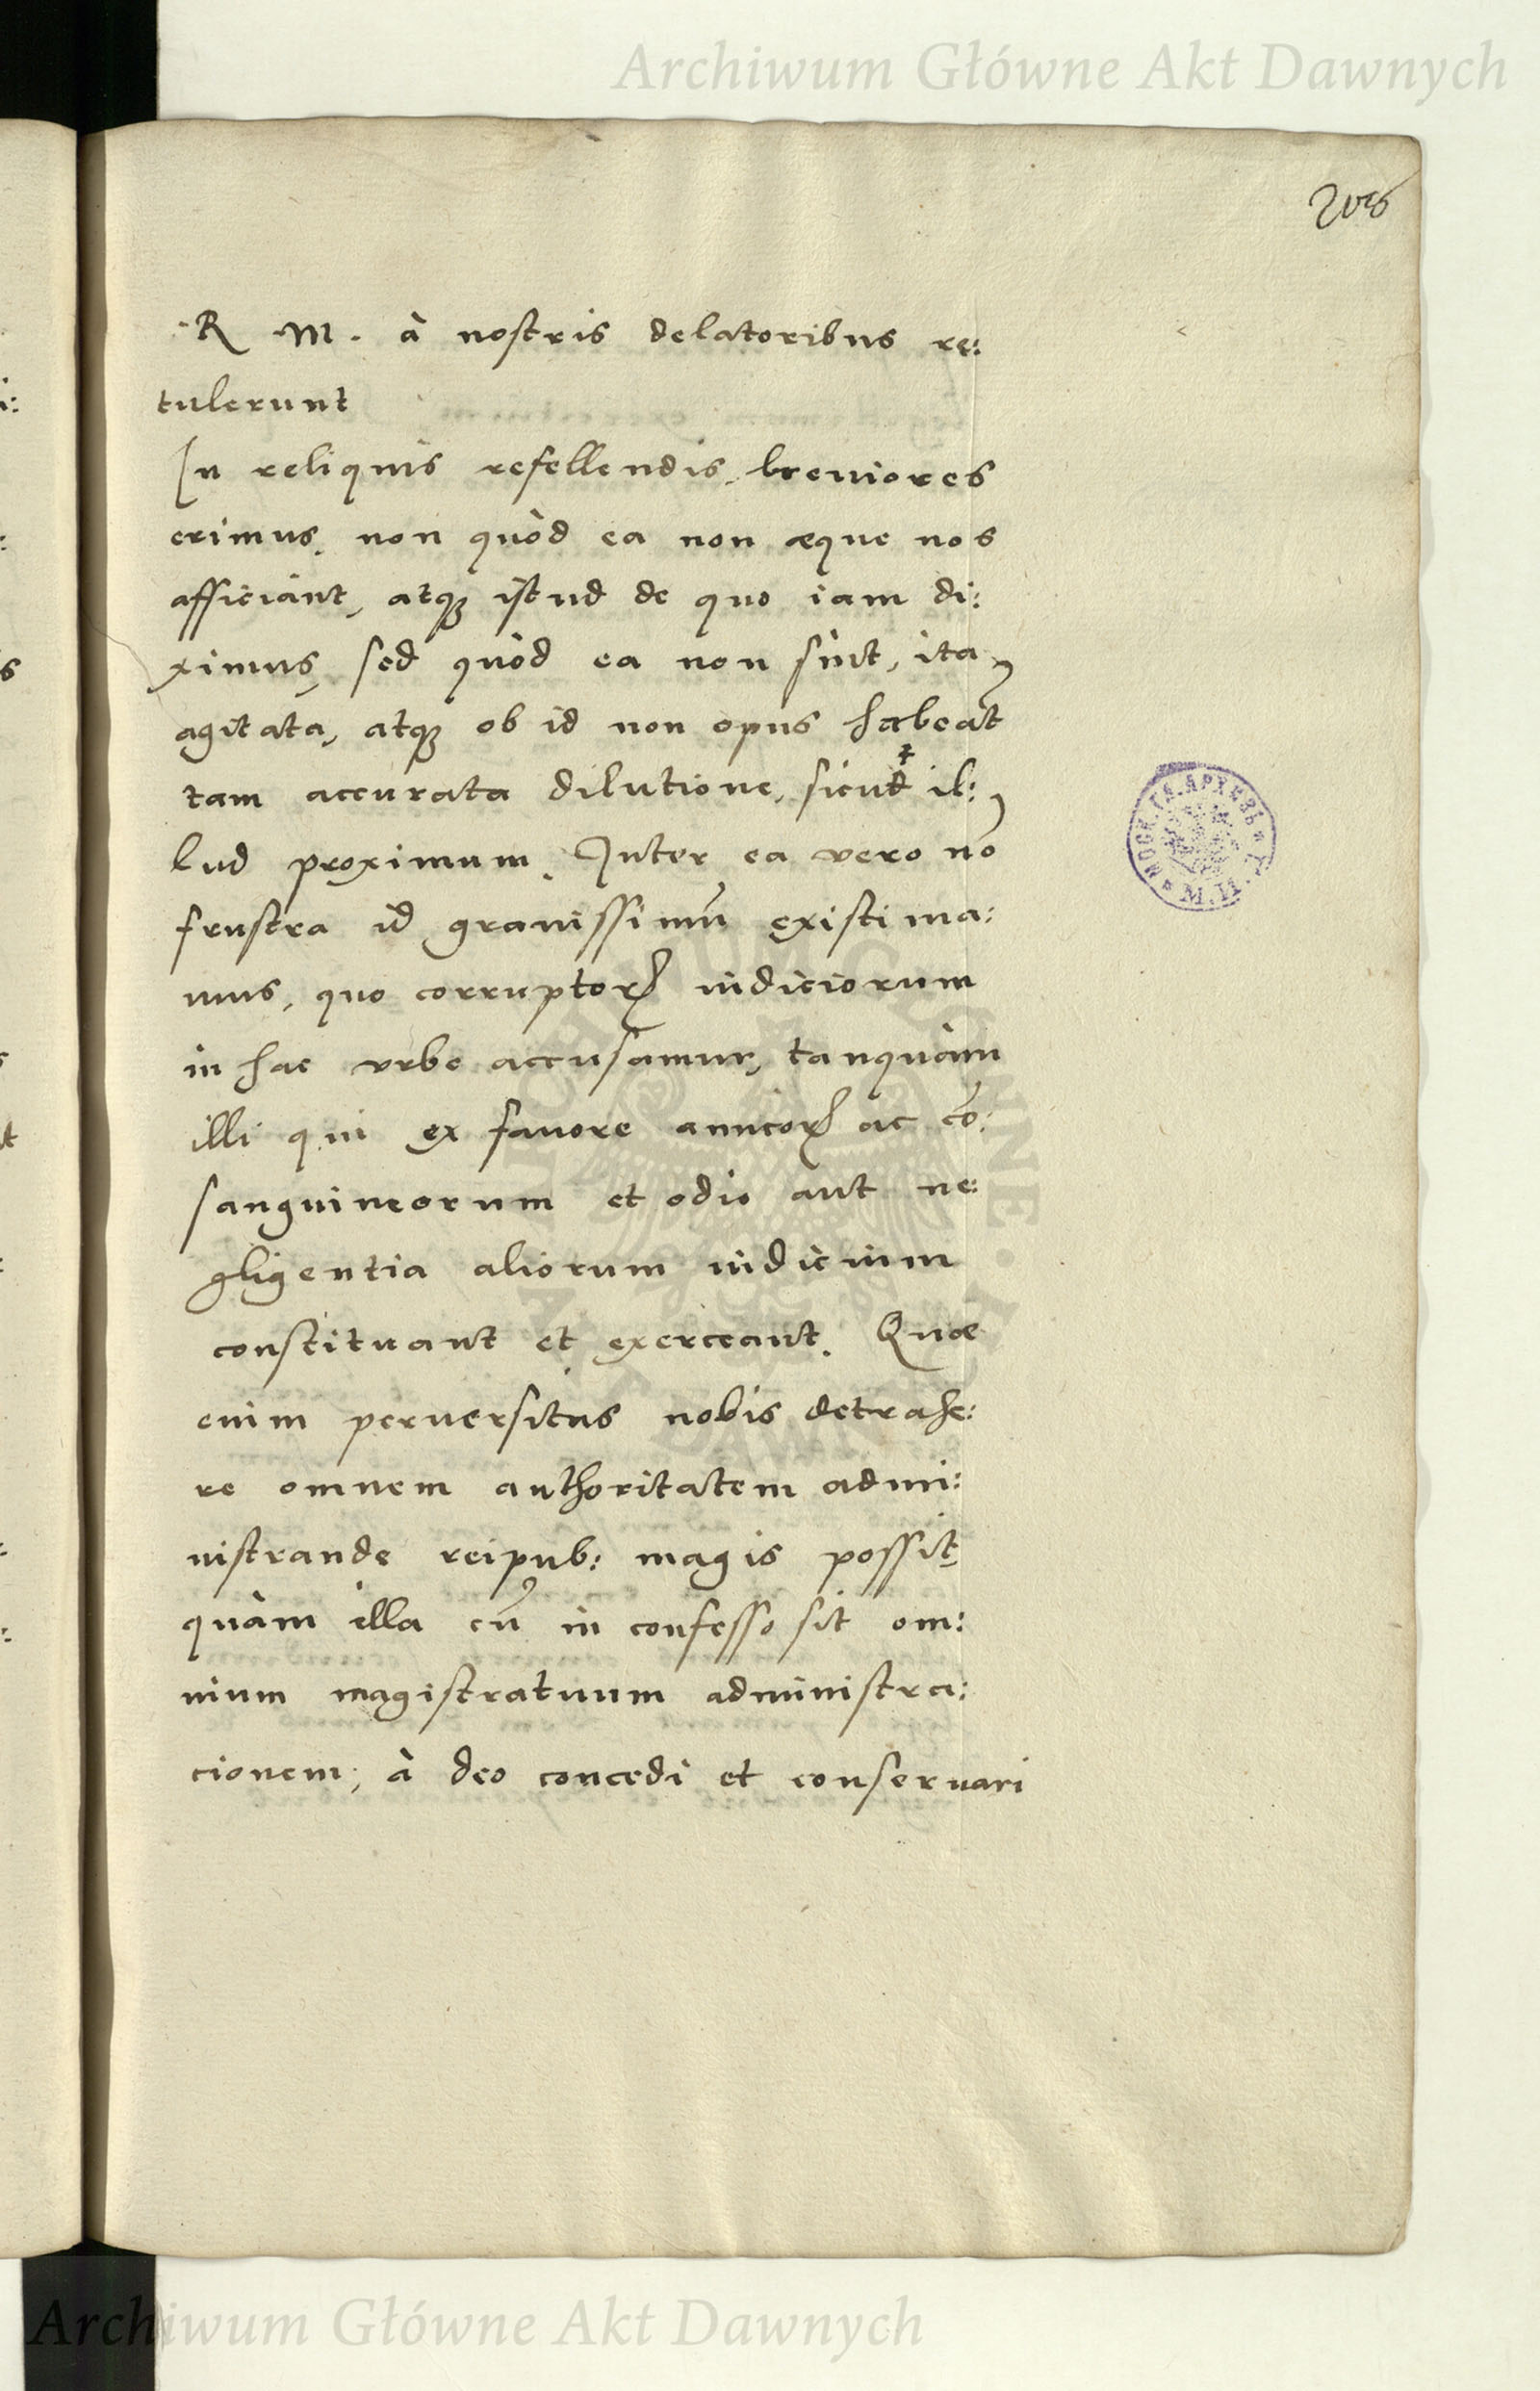 Archiwum Główne Akt Dawnych
R M. à nostris delatoribus re:
tulerunt
In reliquis refellendis, breuiores
erimus, non quòd ea non æque nos
afficiant, atqꝫ istud de quo iam di:
ximus, sed quòd ea non sint, ita
agitata, atqꝫ ob id non opus habeāt
tam accurata dilutione, sicut il:
lud proximum. Inter ea vero nō
frustra id grauissimū existima:
mus, quo corruptorꝝ iudiciorum
in hac vrbe accusamur, tanquàm
illi qui ex fauore amicorꝝ ac cō:
sanguineorum et odio aut ne:
gligentia aliorum iudicium
constituant et exerceant. Quæ
enim peruersitas nobis detrahe:
re omnem authoritatem admi:
nistrande reipub: magis possit,
quàm illa cū in confesso sit om:
nium magistratuum administra:
cionem, à deo concedi et conseruari
МОСК. ГЛ. АРХИВЪ М. И. Д.
ARCHIWUM GŁÓWNE AKT DAWNYCH
Archiwum Główne Akt Dawnych